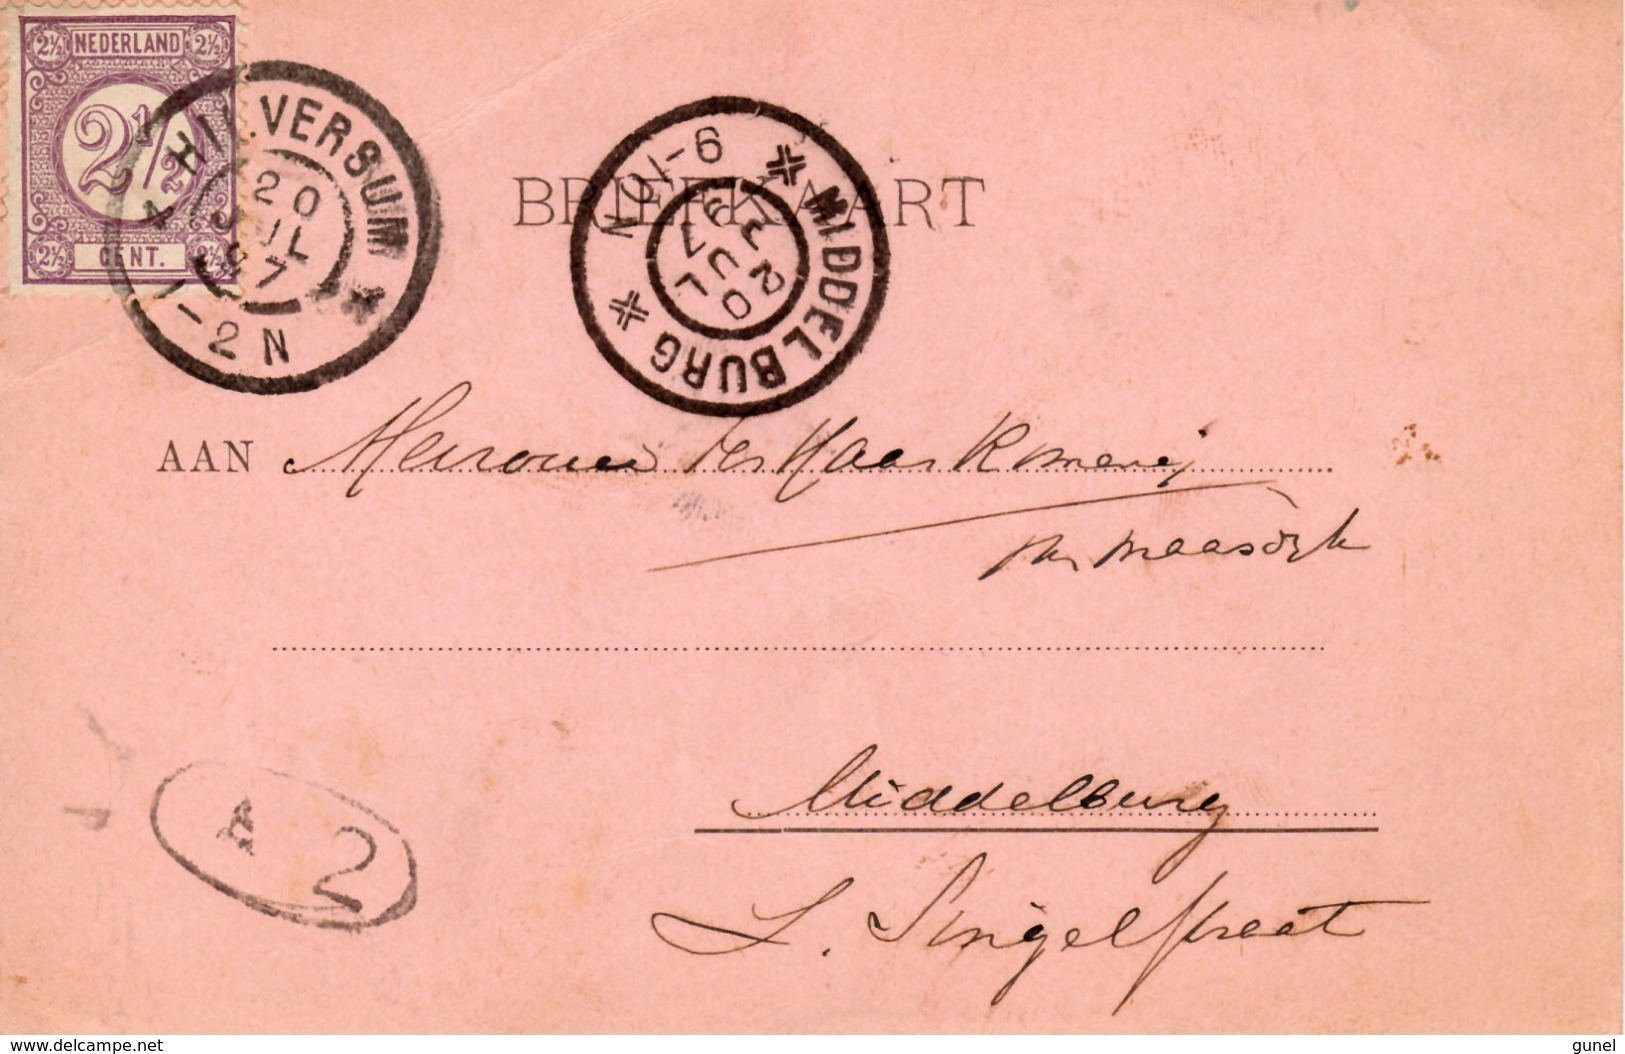 2½ NEDERLAND 2½
2½
2½ CENT. 2½
HILVERSUM
20
JUL
97
1-2 N
MIDDELBURG
9-10 N
20
JUL
97
BRIEFKAART
AAN Mevrouw
Middelburg
L. Singelstraat
A 2
www.delcampe.net
gunel